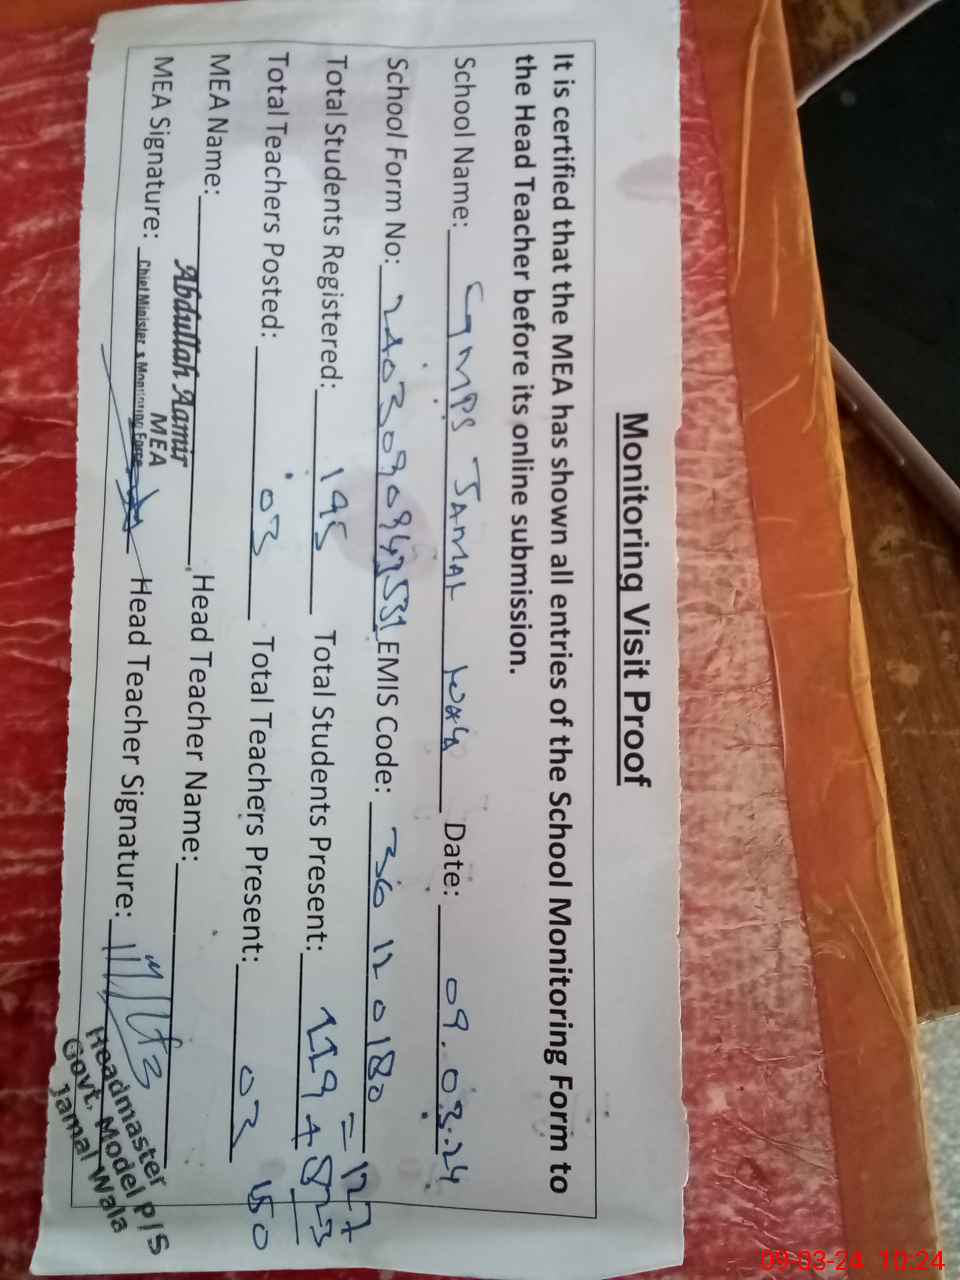 Monitoring Visit Proof
It is certified that the MEA has shown all entries of the School Monitoring Form to
the Head Teacher before its online submission.
School Name: GMPS JAMAL Date: 09.03.24
School Form No: EMIS Code: 36120180
Total Students Registered: 195 Total Students Present: 119 + 8 = 127
23
150
Total Teachers Posted: 03 Total Teachers Present: 03
MEA Name: Abdullah Aamir Head Teacher Name:
MEA
Chief Minister's Monitoring Force
MEA Signature: Head Teacher Signature:
Headmaster
Govt. Model P/S
Jamal Wala
09-03-24 10:24